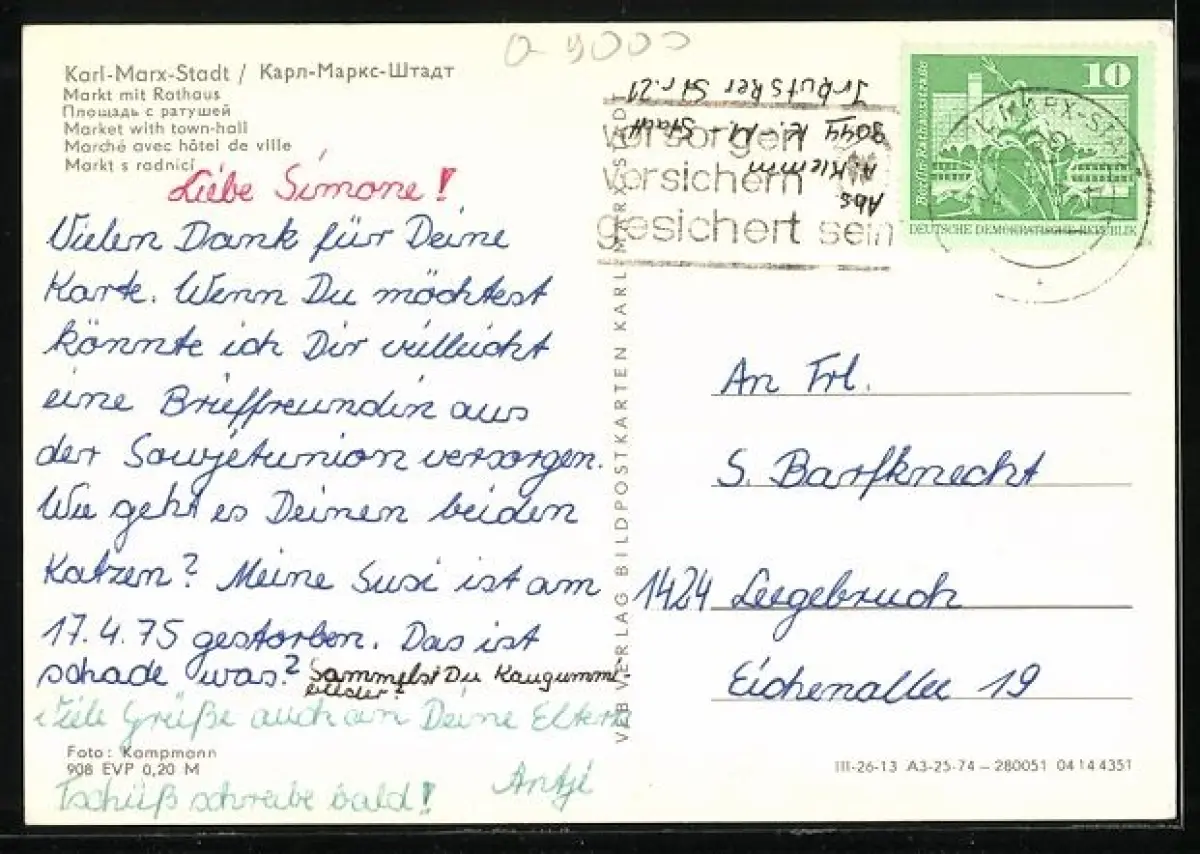 O-9000
Karl-Marx-Stadt / Карл-Маркс-Штадт
Markt mit Rathaus
Площадь с ратушей
Market with town-hall
Marché avec hôtel de ville
Markt s radnicí
Liebe Simone!
Vielen Dank für Deine
Karte. Wenn Du möchtest
könnte ich Dir vielleicht
eine Brieffreundin aus
der Sowjetunion versorgen.
Wie geht es Deinen beiden
Katzen? Meine Susi ist am
17.4.75 gestorben. Das ist
schade was? Sammelst Du Kaugummi-
bilder?
Viele Grüße auch an Deine Eltern
Foto: Kampmann
908 EVP 0,20 M
Antje
Tschüß schreibe bald!
VEB VERLAG BILDPOSTKARTEN KARL-MARX-STADT
Abs.
A. Klemm
9044 K.-M.-Stadt
Irkutsker Str. 21
vorsorgen
versichern
gesichert sein
10
Berlin, Rathausstraße
DEUTSCHE DEMOKRATISCHE REPUBLIK
An Frl.
S. Barfknecht
1424 Leegebruch
Eichenallee 19
III-26-13 A3-25-74 – 280051 04 14 4351